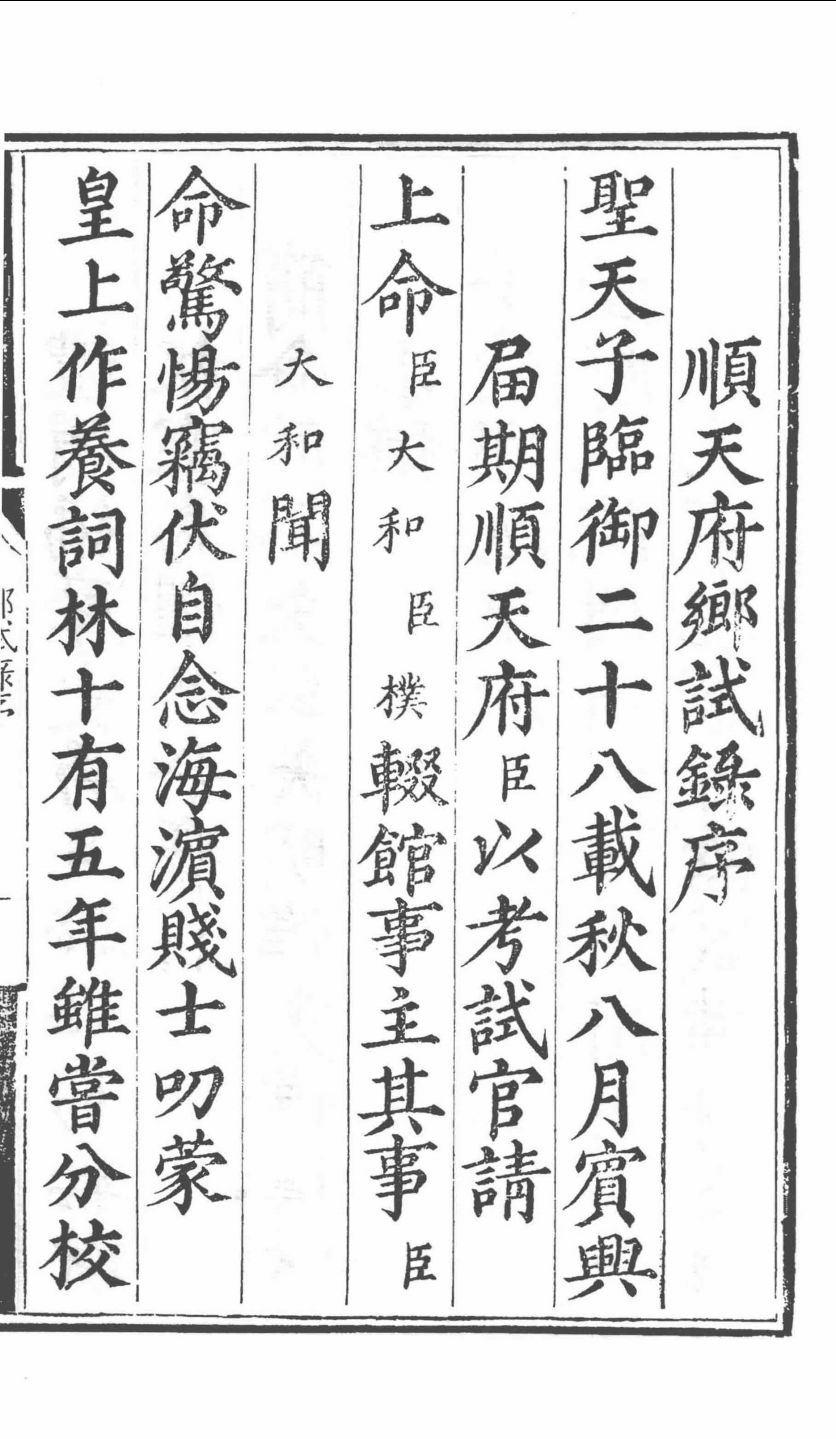 順天府鄉試錄序
聖天子臨御二十八載秋八月賓興
届期順天府臣以考試官請
上命臣大和臣樸輟館事主其事臣
大和聞
命驚惕竊伏自念海濵賤士叨蒙
皇上作養詞林十有五年雖嘗分校